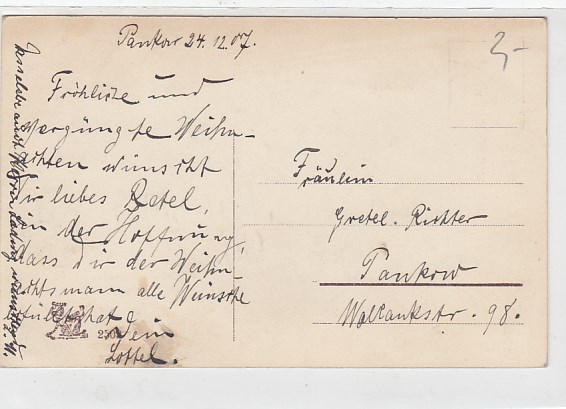 Pankow 24.12.07.
Fröhliche und
vergüngte Weihn-
achten wünscht
Dir liebes Betel,
in der Hoffnung,
dass dir der Weihn-
achtsmann alle Wünsche
erfüllt hat
Dein
Lottel.
250
3,-
Fräulein
Gretel. Richter
Pankow
Wollankstr. 98.